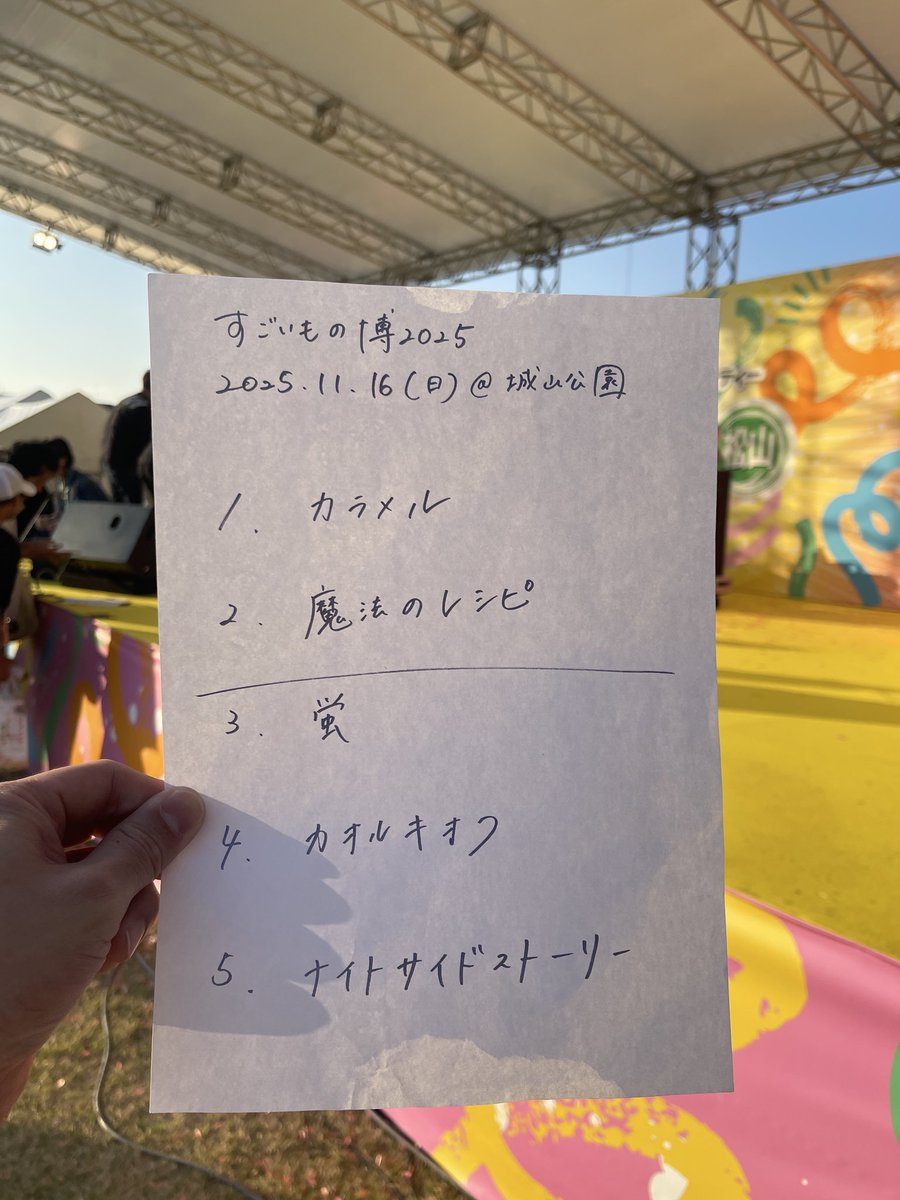 すごいもの博2025
2025.11.16(日)@城山公園
1. カラメル
2. 魔法のレシピ
3. 蛍
4. カオルキオク
5. ナイトサイドストーリー
松山